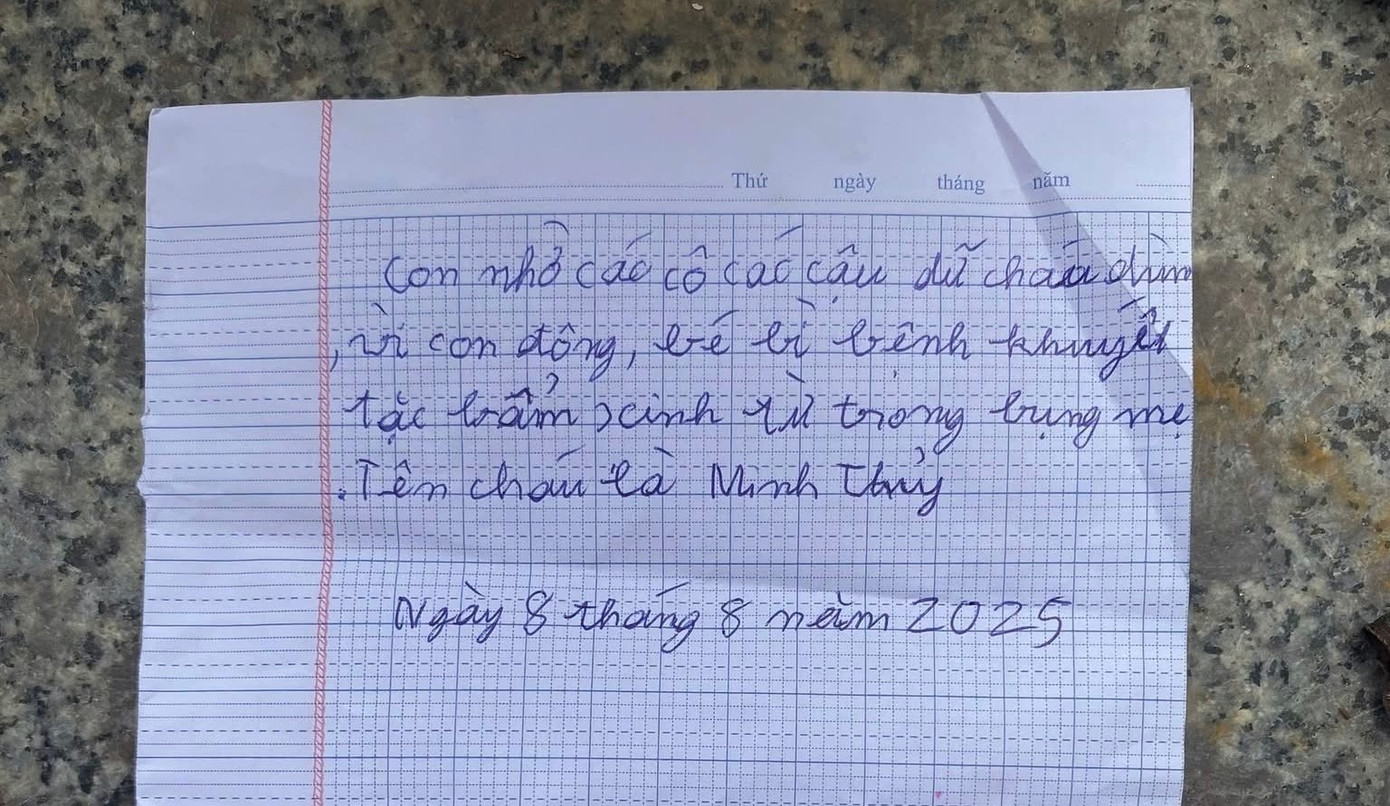 Thứ ngày tháng năm
Con nhở các cô các cậu dữ cháu dùm
, vì con đông, bé bì bênh khuyết
tặc bẩm xinh từ trong bụng mẹ
. Tên cháu là Minh Thủy
Ngày 8 tháng 8 năm 2025